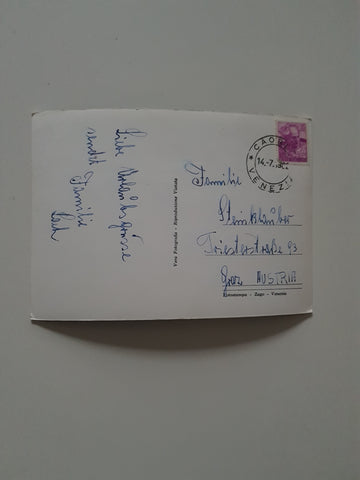 Liebe Urlaubsgrüsse
sendet Familie
Vera Fotografia - Riproduzione Vietata
CAO
14.-7.
VENEZ
Familie
Steinklauber
Triesterstraße 93
Graz AUSTRIA
Zago - Venezia